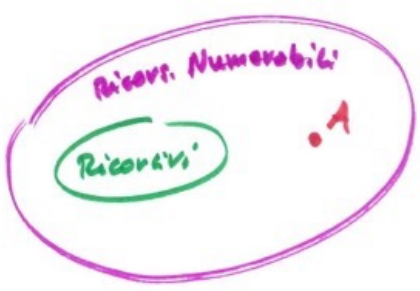 Ricors. Numerabili
Ricorsivi
• A